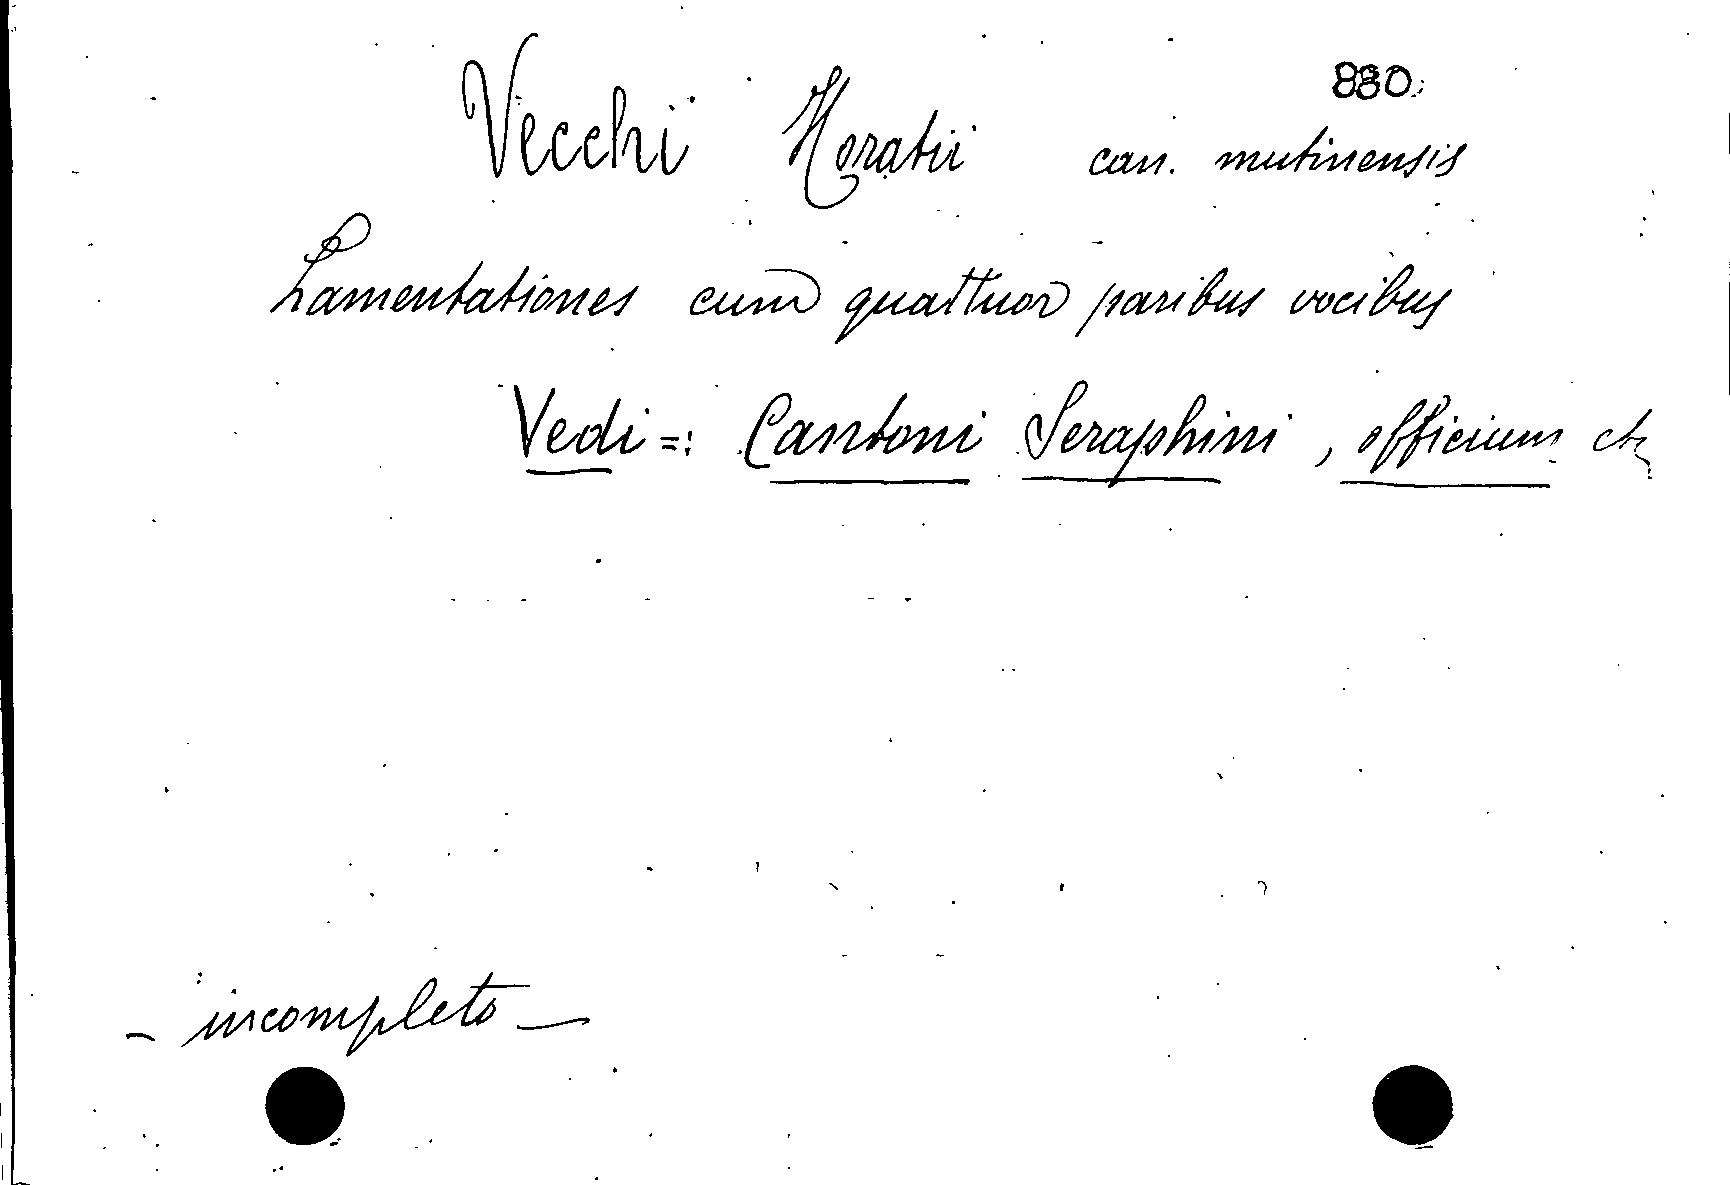 880
Vecchii Horatii can. mutinensis
Lamentationes cum quattuor paribus vocibus
Vedi =: Cantoni Seraphini, officium etc
- incompleto -